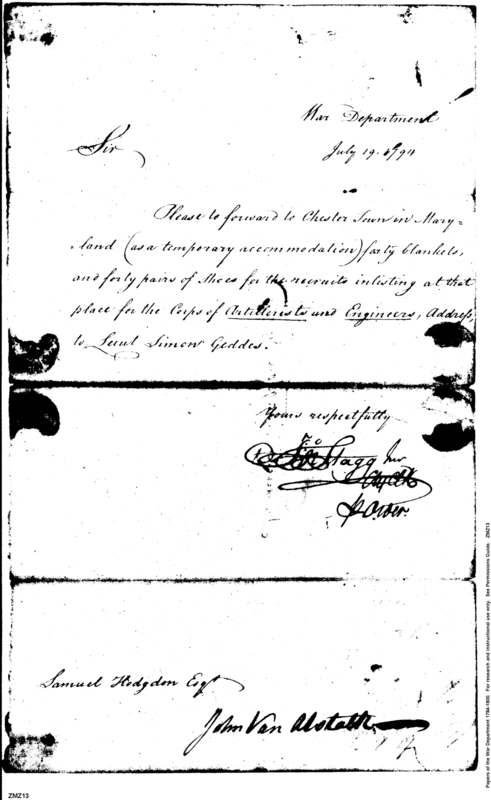 War Department
July 19. 1794
Sir
Please to forward to Chester Town in Mary=
=land (as a temporary accommodation) forty blankets,
and forty pairs of Shoes for the recruits inlisting at that
place for the Corps of Artillerists and Engineers, Address,
to Lieut Simon Geddes.
Yours respectfully
Jno Stagg Jnr
Ch. Clk
Samuel Hodgdon Esqr
John Van Alstalk
ZMZ13
Papers of the War Department 1784-1800. For research and instructional use only. See Permissions Guide. ZMZ13